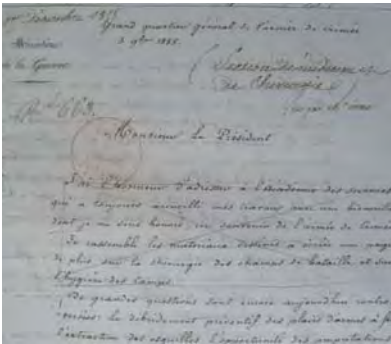 Grand quartier général de l'armée de Crimée
3 9bre 1855.
Ministère
de la Guerre
Section de médecine et
de Chirurgie
Monsieur le Président
J'ai l'honneur d'adresser à l'académie des sciences
qui a toujours accueilli mes travaux avec une bienveill
dont je me sens honoré, un souvenir de l'armée de Crimée
Je rassemble les matériaux destinés à écrire une page
de plus sur la chirurgie des champs de bataille et sur
l'hygiène des camps.
De grandes questions sont encore aujourd'hui contro
versées: le débridement préventif des plaies d'armes à f
l'extraction des esquilles l'opportunité des amputations